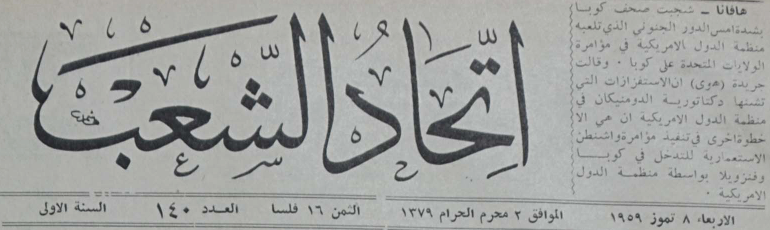 هافانا ــ شجبت صحف كوبا
بشدة امس الدور الجنوني الذي تلعبه
منظمة الدول الامريكية في مؤامرة
الولايات المتحدة على كوبا ٠ وقالت
جريدة (هوى) ان الاستفزازات التي
تشنها دكتاتورية الدومنيكان في
منظمة الدول الامريكية ان هي الا
خطوة اخرى في تنفيذ مؤامرة واشنطن
الاستعمارية للتدخل في كوبا
وفنزويلا بواسطة منظمة الدول
الامريكية ٠
اتحاد الشعب
الاربعاء ٨ تموز ١٩٥٩ الموافق ٢ محرم الحرام ١٣٧٩ الثمن ١٦ فلسا العدد ١٤٠ السنة الاولى